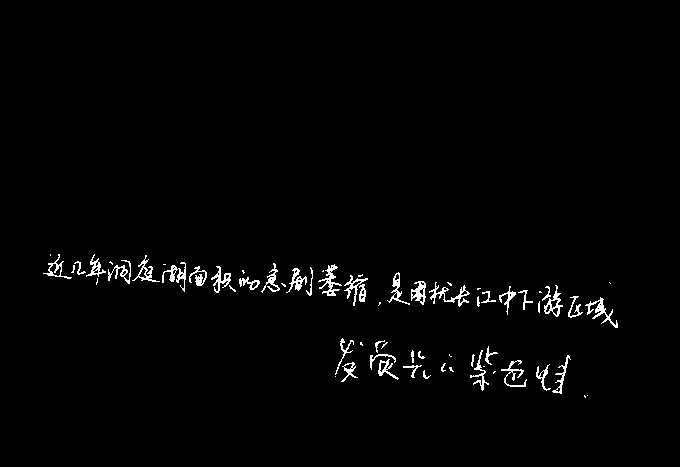 近几年洞庭湖面积的急剧萎缩，是困扰长江中下游区域
发员长江紫色